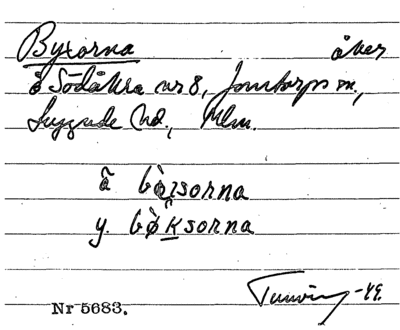 Byxorna åker
å Södåkra nr 8, Jonstorps sn.,
Luggude hd., Mlm.
ã bø̀ısorna
y. bø̀ksorna
-49.
Nr 5683.